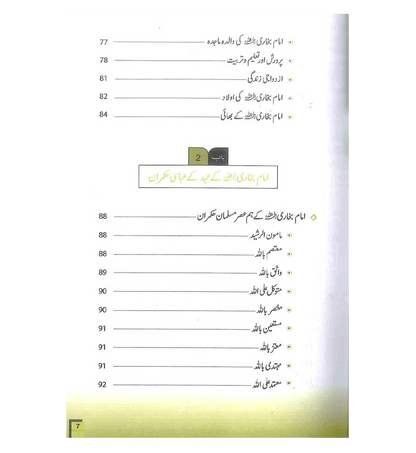 امام بخاری رحمہ اللہ کی والدہ ماجدہ 77
پرورش اور تعلیم و تربیت 78
ازدواجی زندگی 81
امام بخاری رحمہ اللہ کی اولاد 82
امام بخاری رحمہ اللہ کے بھائی 84
باب 2
امام بخاری رحمہ اللہ کے عہد کے عباسی حکمران
امام بخاری رحمہ اللہ کے ہم عصر مسلمان حکمران 88
مامون الرشید 88
معتصم باللہ 88
واثق باللہ 89
متوکل علی اللہ 90
منتصر باللہ 90
مستعین باللہ 91
معتز باللہ 91
مہتدی باللہ 91
معتمد علی اللہ 92
7